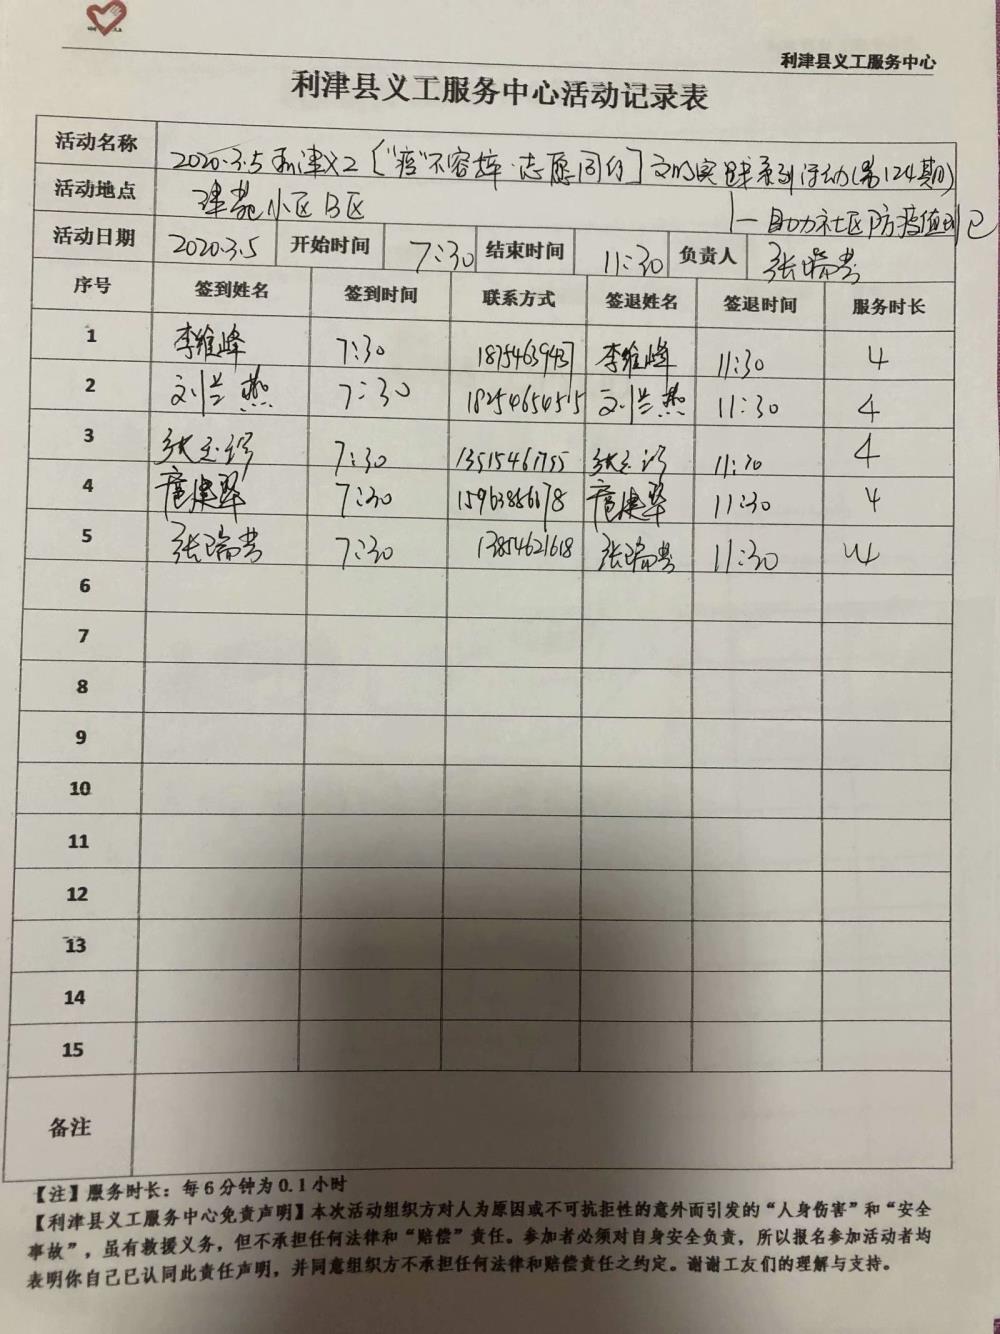 利津县义工服务中心
利津县义工服务中心活动记录表
活动名称 2020.3.5利津义工[“疫”不容辞·志愿同行]文明实践系列活动(第124期)
—助力社区防疫值
活动地点 津苑小区B区
活动日期 2020.3.5 开始时间 7:30 结束时间 11:30 负责人 张瑞芳
序号 签到姓名 签到时间 联系方式 签退姓名 签退时间 服务时长
1 李维峰 7:30 18754639437 李维峰 11:30 4
2 刘兰燕 7:30 18254654515 刘兰燕 11:30 4
3 张玉珍 7:30 13515461755 张玉珍 11:30 4
4 扈建翠 7:30 15963886178 扈建翠 11:30 4
5 张瑞芳 7:30 13854621618 张瑞芳 11:30 4
6
7
8
9
10
11
12
13
14
15
备注
【注】服务时长：每6分钟为0.1小时
【利津县义工服务中心免责声明】本次活动组织方对人为原因或不可抗拒性的意外而引发的“人身伤害”和“安全
事故”，虽有救援义务，但不承担任何法律和“赔偿”责任。参加者必须对自身安全负责，所以报名参加活动者均
表明你自己已认同此责任声明，并同意组织方不承担任何法律和赔偿责任之约定。谢谢工友们的理解与支持。